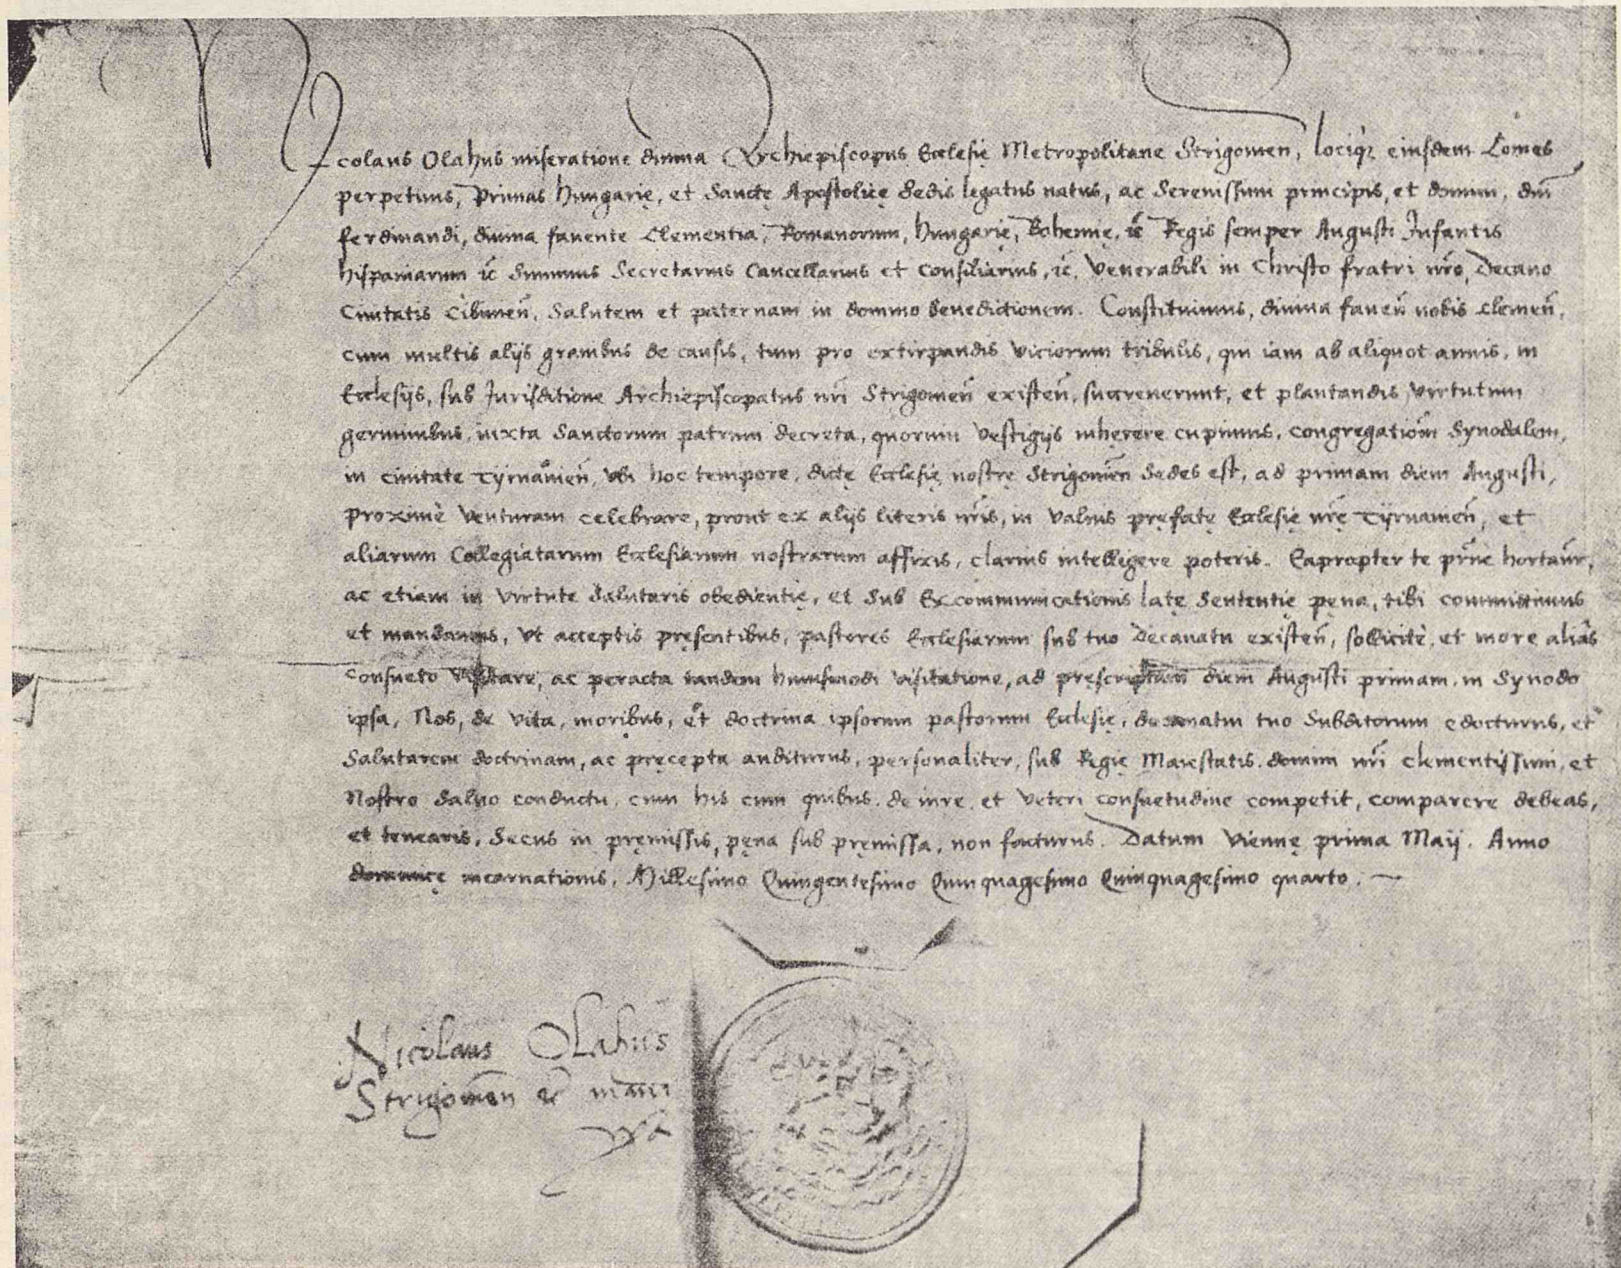 Nicolaus Olahus miseratione diuina Archiepiscopus Ecclesię Metropolitane Strigonień, lociqꝫ eiusdem Comes
perpetuus, Primas Hungarię, et Sanctę Apostolicę Sedis legatus natus, ac Serenissimi principis, et domini, dni
ferdinandi, diuina fauente Clementia, Romanorum, Hungarię, Bohemię, ⁊c̃ Regis semper Augusti Infantis
Hispaniarum ⁊c̃ Summus Secretarius Cancellarius et Consiliarius, ⁊c̃, Venerabili in Christo fratri nr̃o, Decano
Ciuitatis Cibinień, Salutem et paternam in domino benedictionem. Constituimus, diuina faueñ nobis clemeñ,
cum multis alijs grauibus de causis, tum pro extirpandis viciorum tribulis, qui iam ab aliquot annis, in
Ecclesijs, sub Iurisditione Archiepiscopatus nr̃i Strigonień existeñ, succreuerunt, et plantandis virtutum
germinibus, iuxta Sanctorum patrum decreta, quorum vestigijs inherere cupimus, congregatioñm Synodalem,
in ciuitate Tÿrnauień, vbi hoc tempore, dictę Ecclesię nostrę Strigonień Sedes est, ad primam diem Augusti,
proximè venturam celebrare, prout ex alijs literis nr̃is, in valuis pręfatę Ecclesię nr̃ę Tÿrnauień, et
aliarum Collegiatarum Ecclesiarum nostrarum affixis, clarius intelligere poteris. Eapropter te pr̃ne hortam̃r,
ac etiam in virtute Salutaris obedientię, et Sub Excommunicationis latę Sententię pęna, tibi committimus
et mandamus, vt acceptis pręsentibus, pastores Ecclesiarum sub tuo Decanatu existeñ, sollicitè, et more aliàs
consueto visitare, ac peracta tandem huiusmodi visitatione, ad pręscriptam diem Augusti primam, in Synodo
ipsa, Nos, de vita, moribus, et doctrina ipsorum pastorum Ecclesię, decanatui tuo Subditorum edocturus, et
Salutarem doctrinam, ac pręcepta auditurus, personaliter, sub Regię Maiestatis, domini nr̃i clementissimi, et
Nostro Saluo conductu, cum his cum quibus, de iure, et veteri consuetudine competit, comparere debeas,
et tenearis, Secus in pręmissis, pęna sub pręmissa, non facturus. Datum Viennę prima Maij. Anno
dominicę incarnationis, Millesimo Quingentesimo Quinquagesimo Quinquagesimo quarto.
Nicolaus Olahus
Strigonień ⁊c̃ manu
ppa